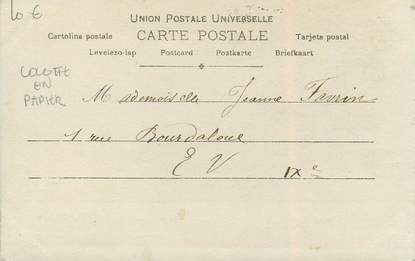 10 €
UNION POSTALE UNIVERSELLE
CARTE POSTALE
Cartolina postale Tarjeta postal
Levelezo-lap Postcard Postkarte Briefkaart
COLLETTE
EN
PAPIER
Mademoiselle Jeanne Favrin
1 rue Bourdaloue
E V IXe